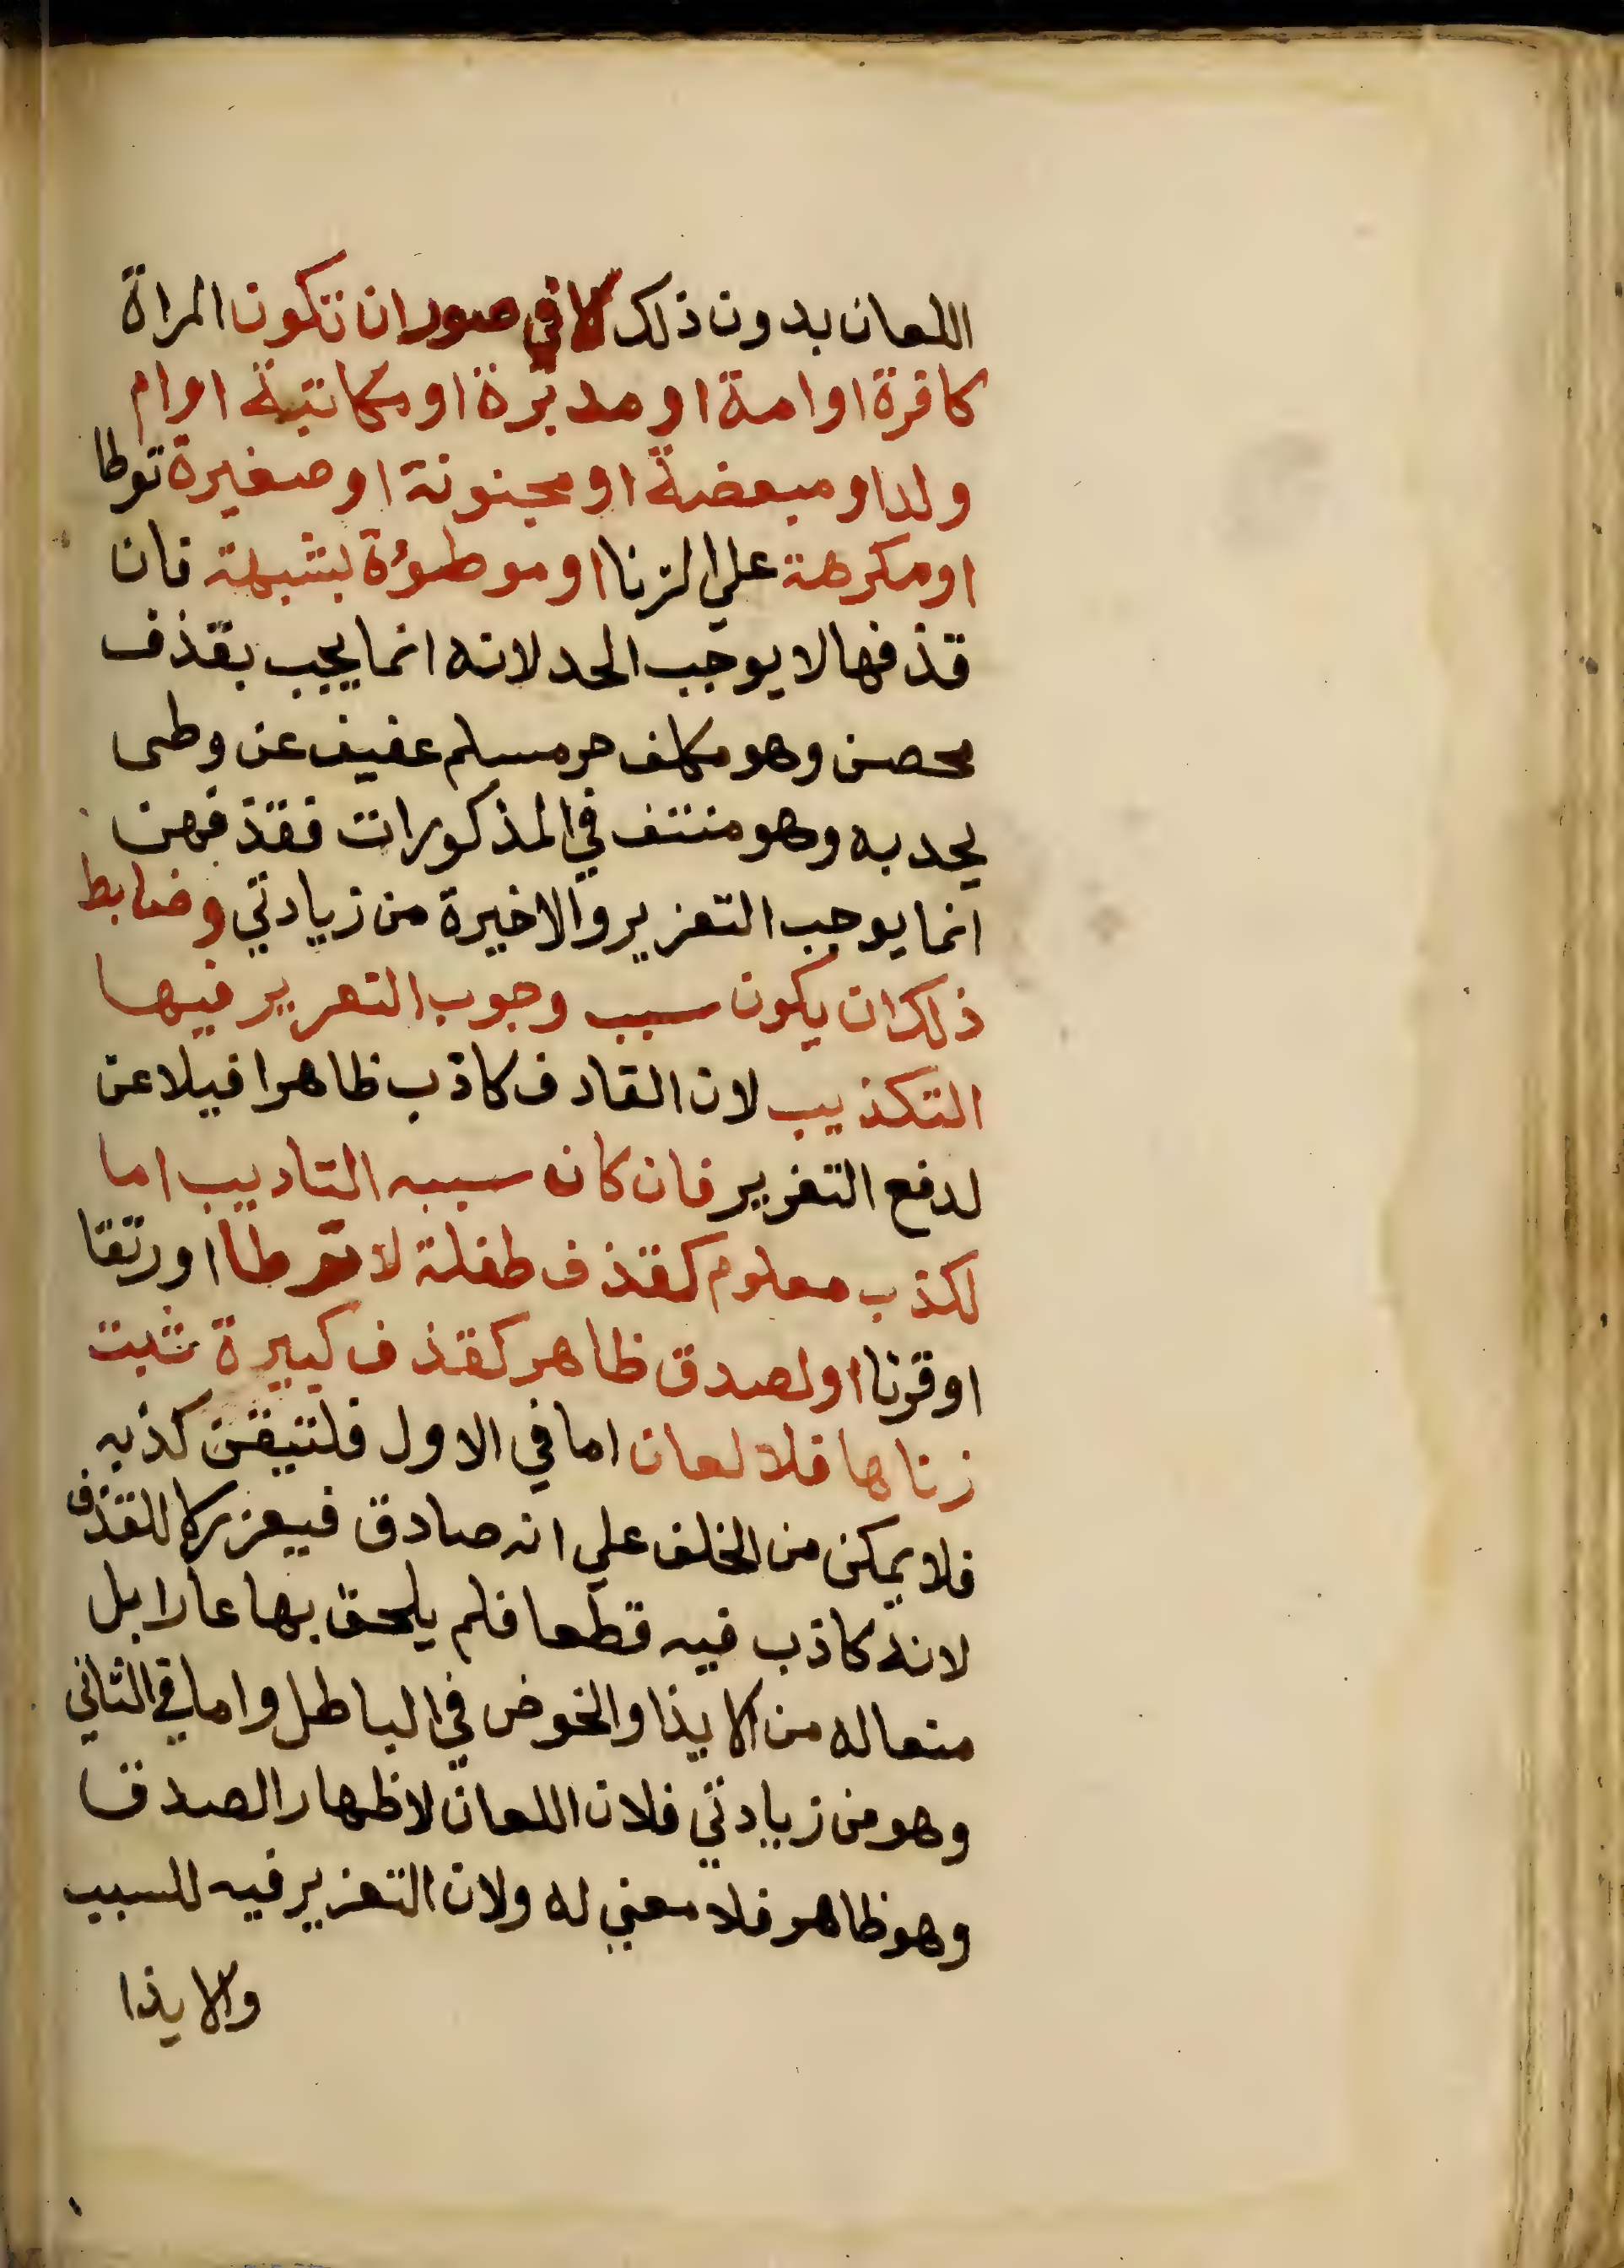 اللعان بدون ذلك الا في صور ان تكون المراة
كافرة او امة او مدبرة او مكاتبة او ام
ولد او مبعضة او مجنونة او صغيرة توطا
او مكرهة علي الزنا او موطؤة بشبهة فان
قذفها لا يوجب الحد لانه انما يجب بقذف
محصن وهو مكلف حر مسلم عفيف عن وطى
يحد به وهو منتف في المذكورات فقذفهن
انما يوجب التعزير والاخيرة من زيادتي وضابط
ذلك ان يكون سبب وجوب التعزير فيها
التكذيب لان القادف كاذب ظاهرا فيلاعن
لدفع التعزير فان كان سببه التاديب اما
لكذب معلوم كقذف طفلة لا توطا او رتقا
او قرنا او لصدق ظاهر كقذف كبيرة ثبت
زناها فلا لعان اما في الاول فلتيقن كذبه
فلا يمكن من الحلف علي انه صادق فيعزر لا للقذف
لانه كاذب فيه قطعا فلم يلحق بها عارا بل
منعا له من الايذا والخوض في الباطل واما في الثاني
وهو من زيادتي فلان اللعان لاظهار الصدق
وهو ظاهر فلا معني له ولان التعزير فيه للسبب
والايذا